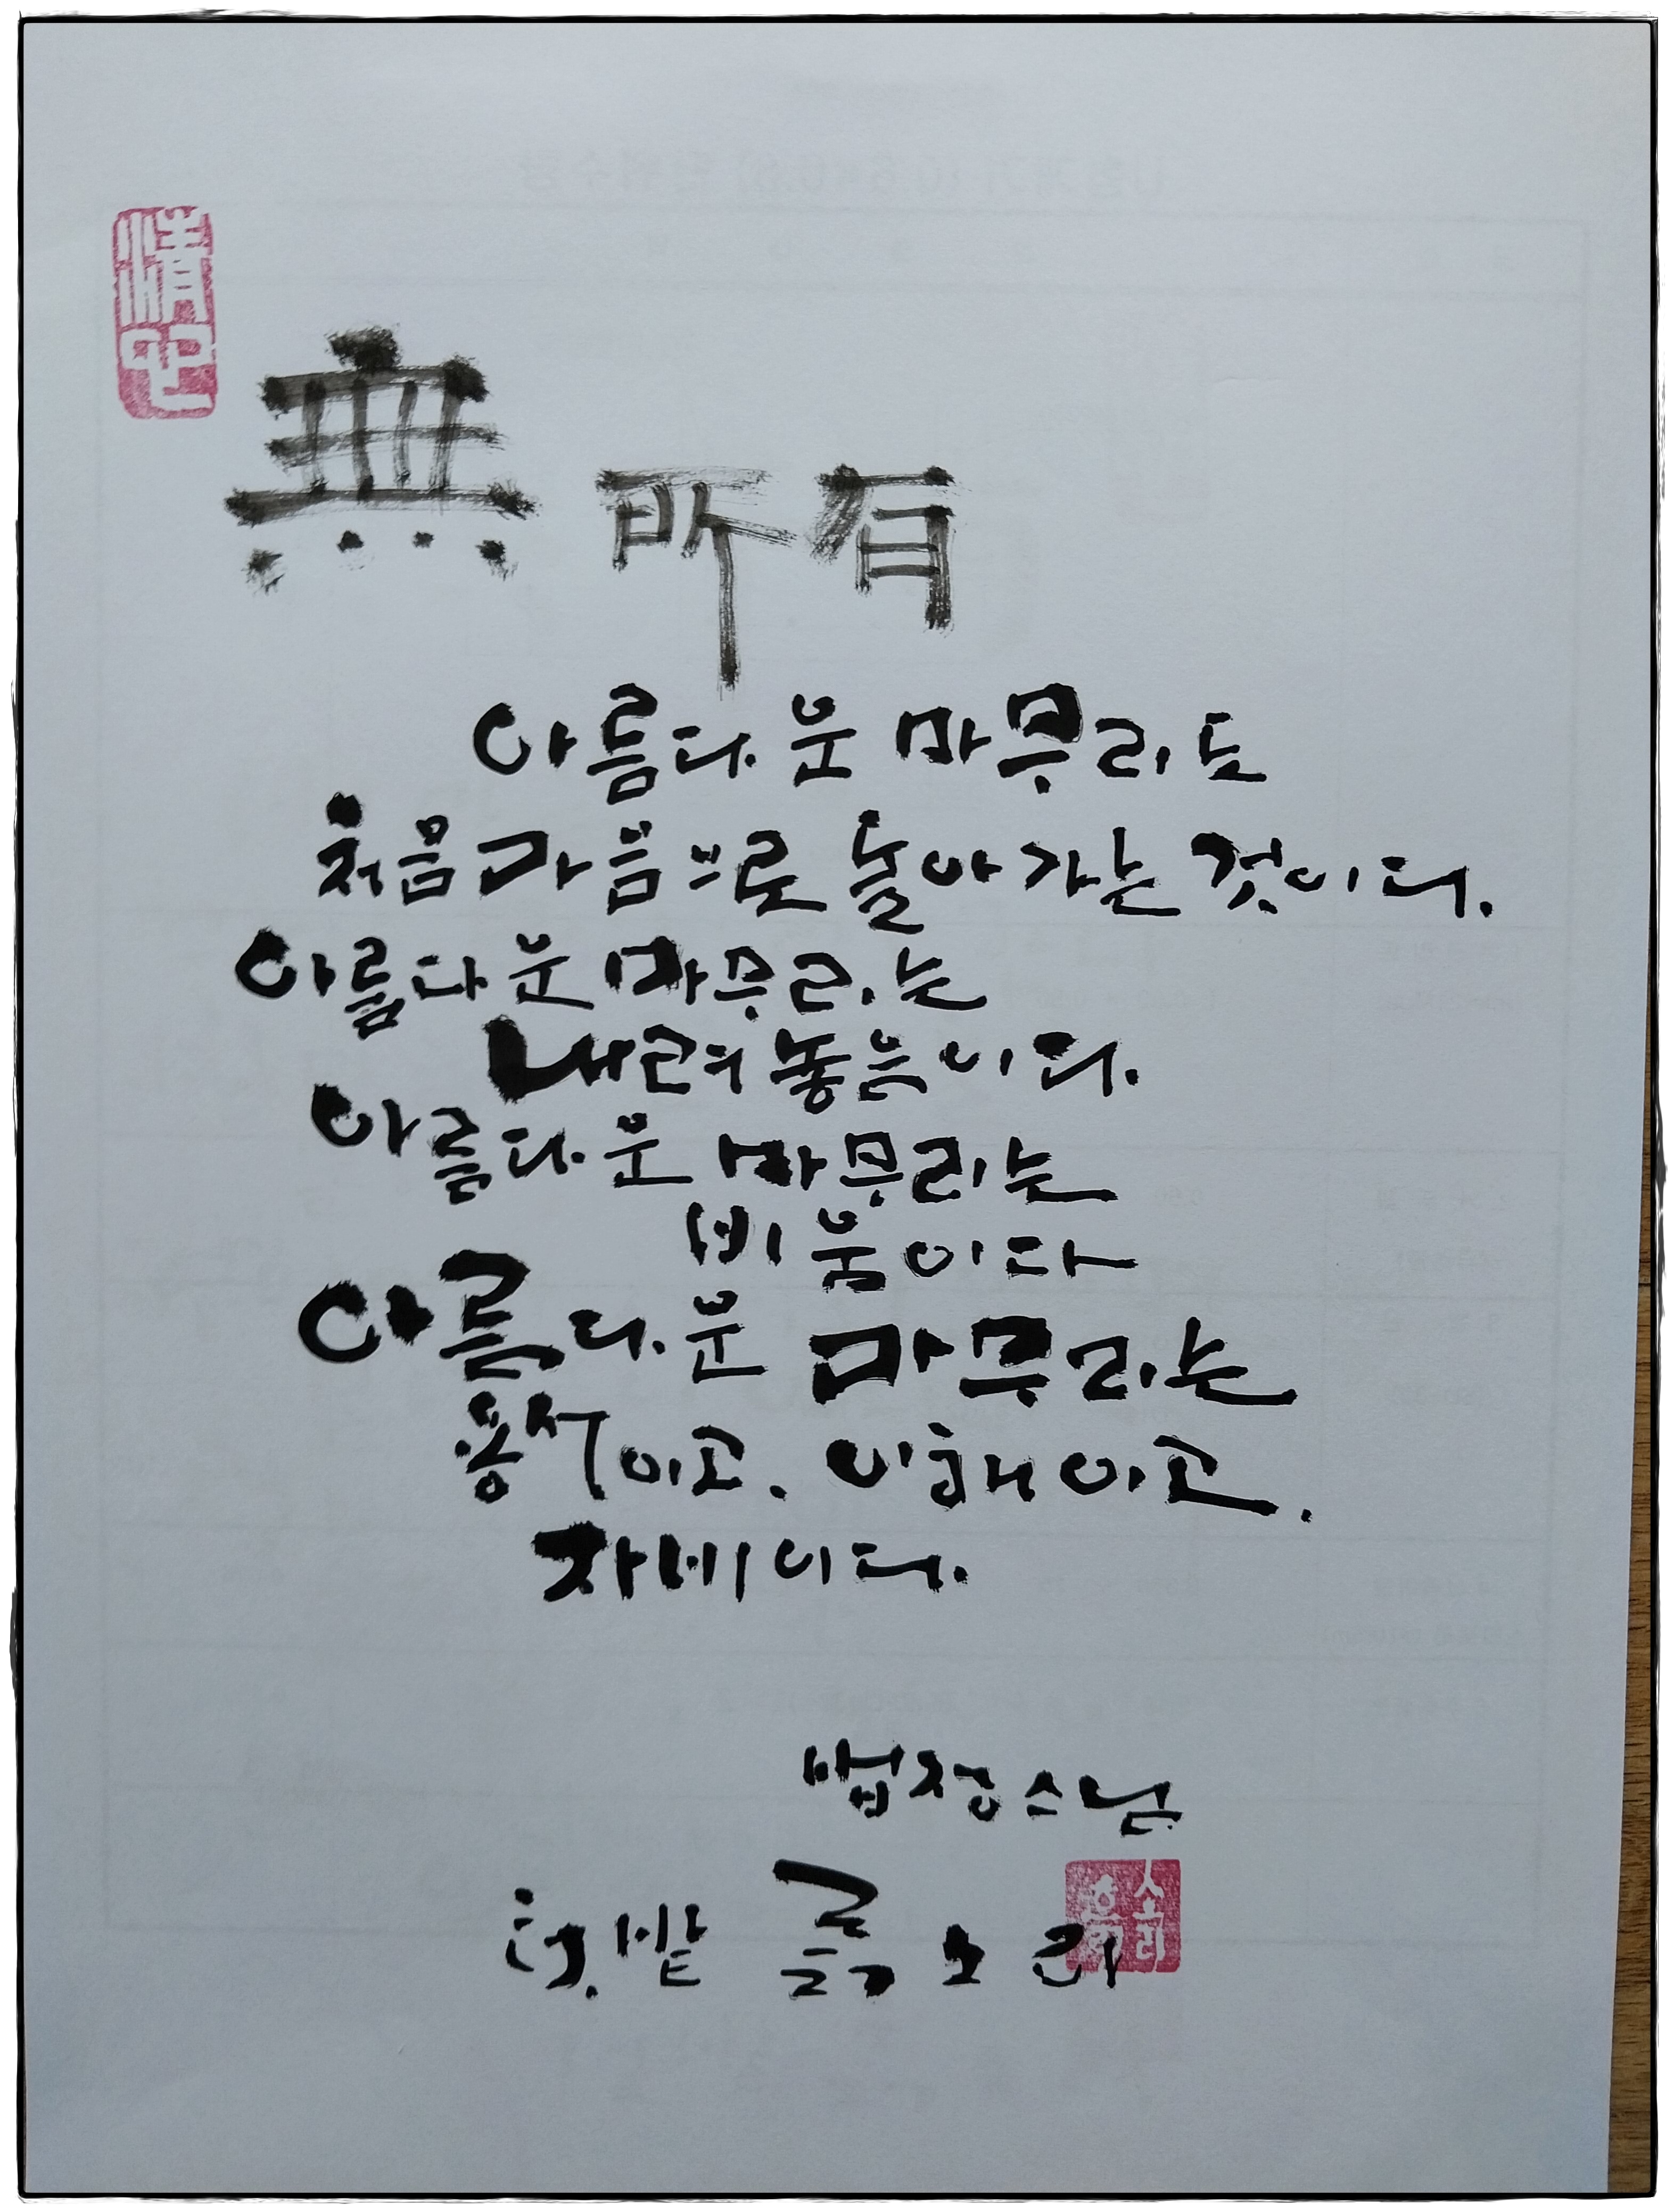 情中
無所有
아름다운 마무리도
처음 마음으로 돌아가는 것이다.
아름다운 마무리는
내려놓음이다.
아름다운 마무리는
비움이다
아름다운 마무리는
용서이고. 이해이고.
자비이다.
법정스님
텃밭 흙소리
흙소리